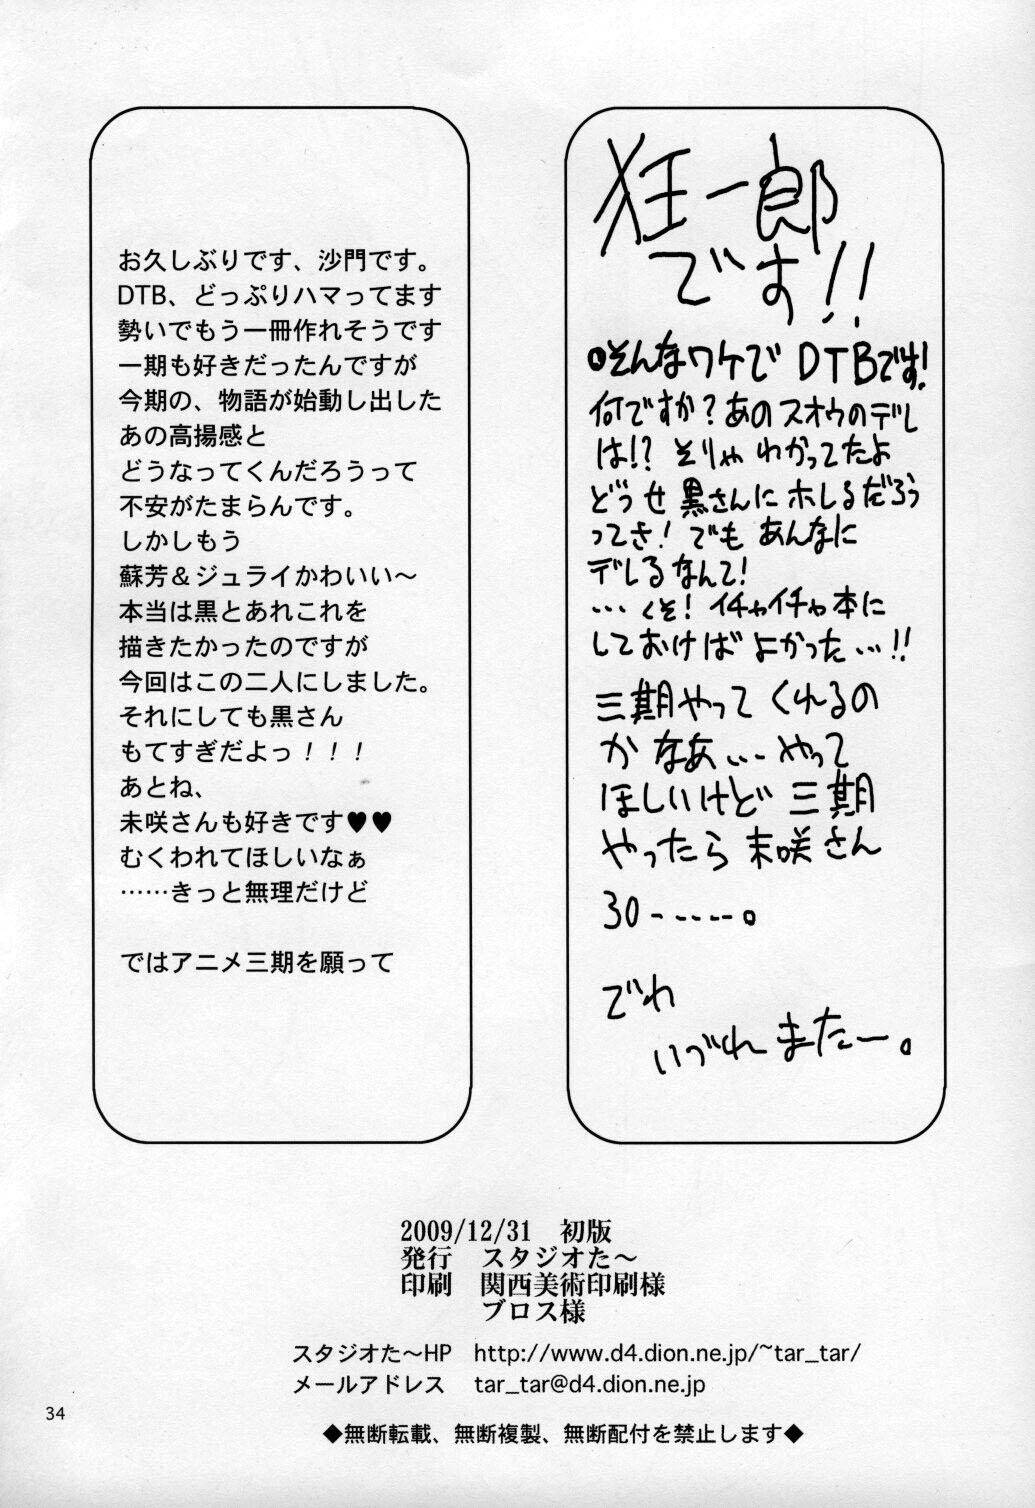 狂一郎
です!!
●そんなワケで DTBです!
何ですか?あのスオウのデレ
は!?そりゃわかってたよ
どうせ黒さんにホレるだろう
ってさ!でもあんなに
デレるなんて!
…くそ!イチャイチャ本に
しておけばよかった…!!
三期やってくれるの
かなあ…やって
ほしいけど三期
やったら未咲さん
30-----。
でわ
いづれまたー。
お久しぶりです、沙門です。
DTB、どっぷりハマってます
勢いでもう一冊作れそうです
一期も好きだったんですが
今期の、物語が始動し出した
あの高揚感と
どうなってくんだろうって
不安がたまらんです。
しかしもう
蘇芳&ジュライかわいい〜
本当は黒とあれこれを
描きたかったのですが
今回はこの二人にしました。
それにしても黒さん
もてすぎだよっ!!!
あとね、
未咲さんも好きです♥♥
むくわれてほしいなぁ
……きっと無理だけど
ではアニメ三期を願って
2009/12/31 初版
発行 スタジオた〜
印刷 関西美術印刷様
ブロス様
スタジオた〜HP http://www.d4.dion.ne.jp/~tar_tar/
メールアドレス tar_tar@d4.dion.ne.jp
34
◆無断転載、無断複製、無断配付を禁止します◆